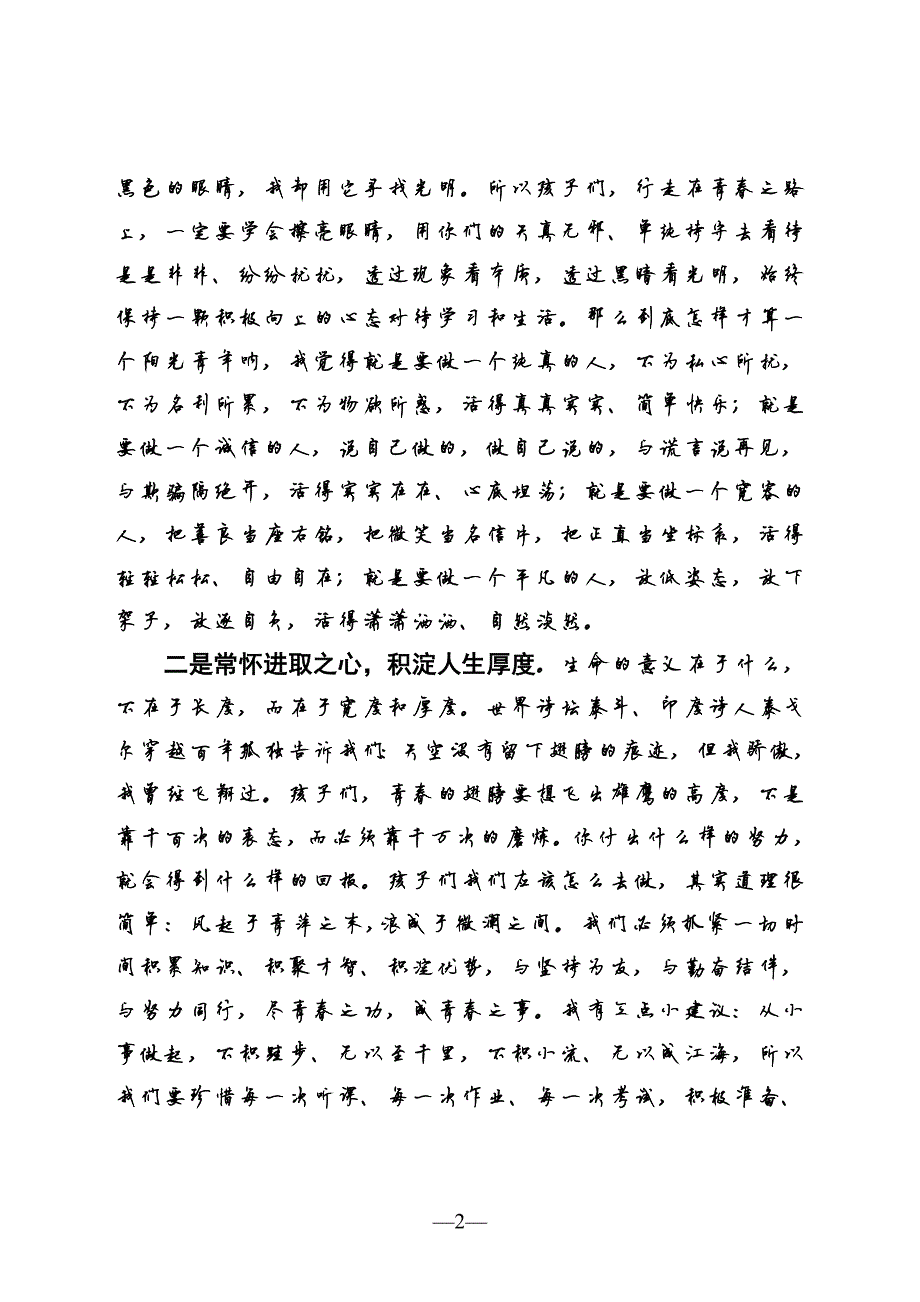 黑色的眼睛，我却用它寻找光明。所以孩子们，行走在青春之路
上，一定要学会擦亮眼睛，用你们的天真无邪、单纯持字去看待
是是非非、纷纷扰扰，透过现象看本质，透过黑暗看光明，始终
保持一颗积极向上的心态对待学习和生活。那么到底怎样才算一
个阳光青年响，我觉得就是要做一个纯真的人，不为私心所扰，
不为名利所累，不为物欲所惑，活得真真实实、简单快乐；就是
要做一个诚信的人，说自己做的，做自己说的，与谎言说再见，
与欺骗隔绝开，活得实实在在、心底坦荡；就是要做一个宽容的
人，把善良当座右铭，把微笑当名信片，把正直当坐标系，活得
轻轻松松、自由自在；就是要做一个平凡的人，放低姿态，放下
架子，放逐自负，活得潇潇洒洒、自然淡然。
二是常怀进取之心，积淀人生厚度．生命的意义在于什么，
不在于长度，而在于宽度和厚度。世界诗坛泰斗、印度诗人泰戈
尔穿越百年孤独告诉我们：天空没有留下翅膀的痕迹，但我骄傲，
我曾经飞翔过。孩子们，青春的翅膀要想飞出雄鹰的高度，不是
靠千百次的表态，而必须靠千万次的磨炼。你付出什么样的努力，
就会得到什么样的回报。孩子们我们应该怎么去做，其实道理很
简单：风起于青萍之末，浪成于微澜之间。我们必须抓紧一切时
间积累知识、积聚才智、积淀优势，与坚持为友，与勤奋结伴，
与努力同行，尽青春之功，成青春之事。我有三点小建议：从小
事做起，不积跬步、无以至千里，不积小流、无以成江海，所以
我们要珍惜每一次听课、每一次作业、每一次考试，积极准备、
—2—